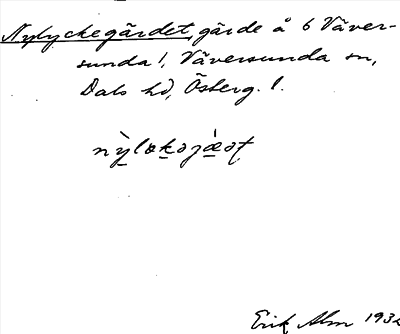 Nylyckegärdet, gärde å 6 Väver-
sunda l, Väversunda sn,
Dals hd, Österg. l.
Erik Alm 193